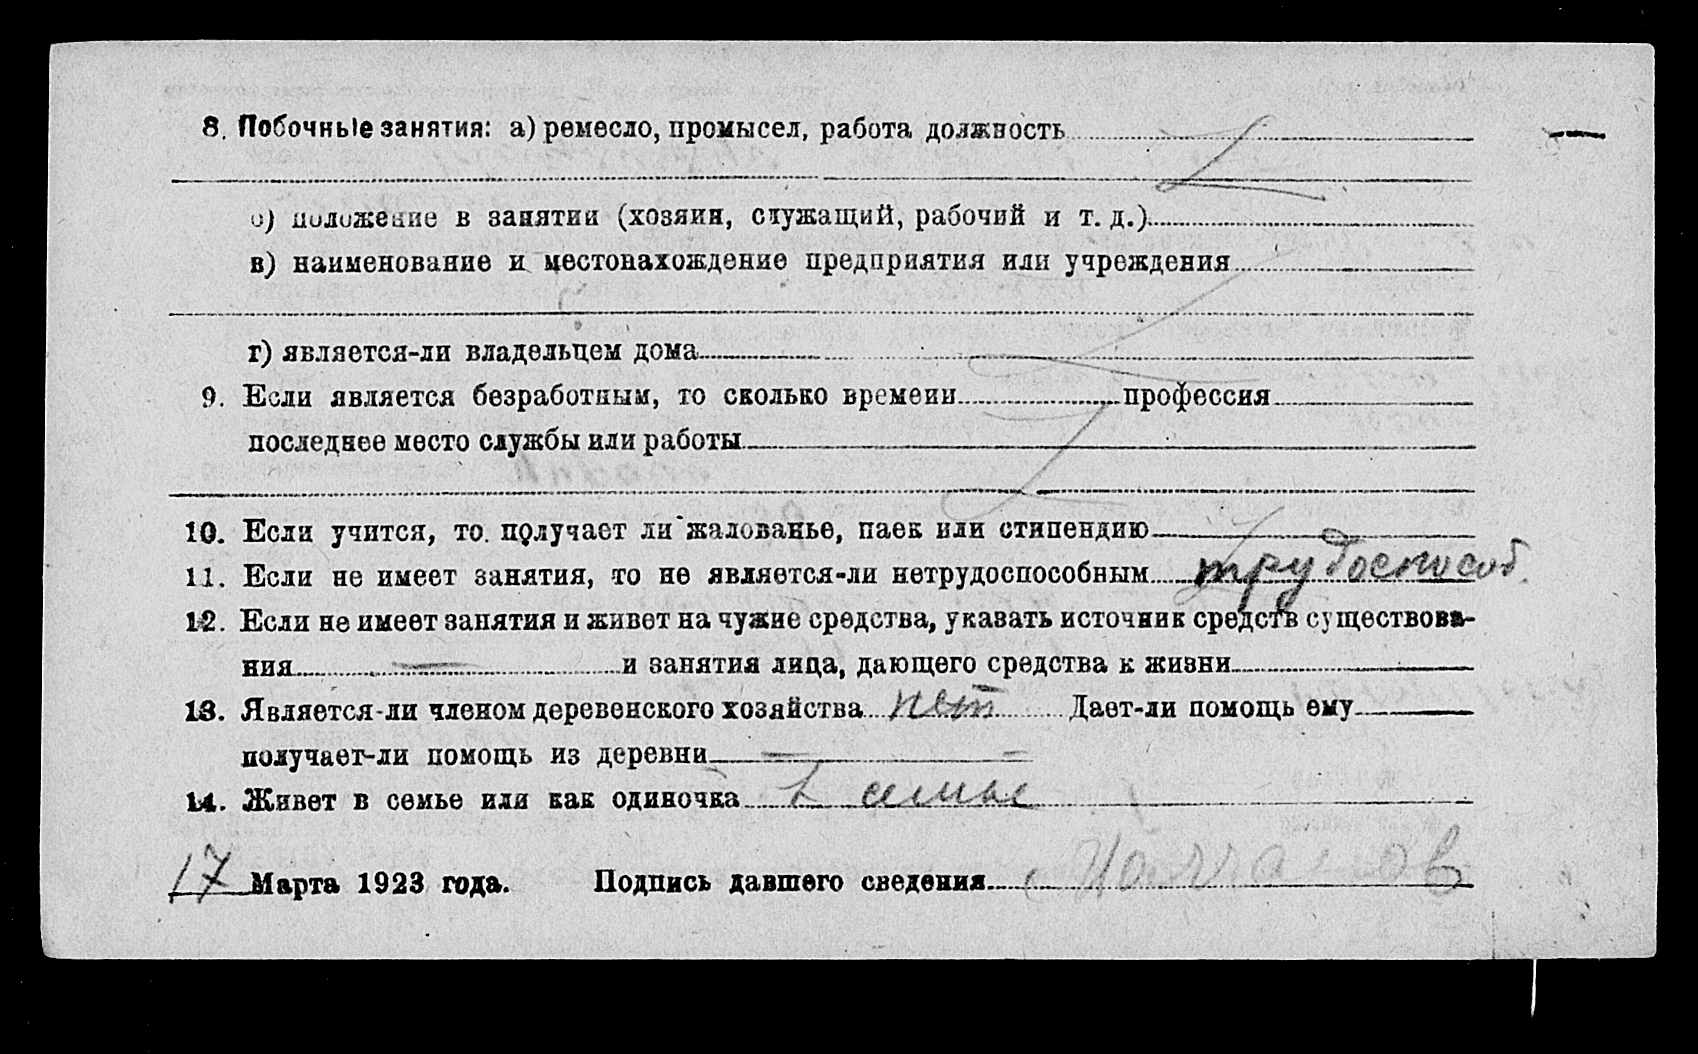 8. Побочные занятия: а) ремесло, промысел, работа должность
б) положение в занятии (хозяин, служащий, рабочий и т. д.)
в) наименование и местонахождение предприятия или учреждения
г) является-ли владельцем дома
9. Если является безработным, то сколько времени профессия
последнее место службы или работы
10. Если учится, то получает ли жалованье, паек или стипендию
11. Если не имеет занятия, то не является-ли нетрудоспособным трудоспособ.
12. Если не имеет занятия и живет на чужие средства, указать источник средств существова-
ния — и занятия лица, дающего средства к жизни
13. Является-ли членом деревенского хозяйства нет Дает-ли помощь ему
получает-ли помощь из деревни — —
14. Живет в семье или как одиночка в семье
17 Марта 1923 года. Подпись давшего сведения